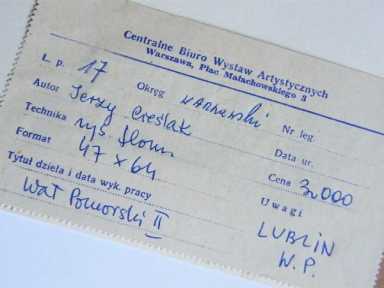 Centralne Biuro Wystaw Artystycznych
Warszawa, Plac Małachowskiego 3
L. p. 17 Okręg warszawski Nr leg.
Autor Jerzy Cieślak Data ur.
Technika rys. tłom. Cena 30000
Format 47 x 64 Uwagi
Tytuł dzieła i data wyk. pracy LUBLIN
Wał Pomorski II W.P.